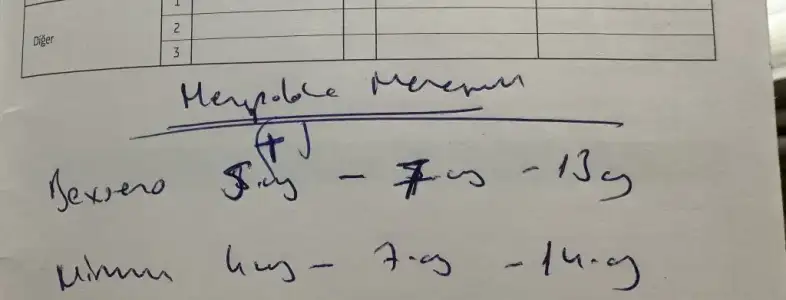 1
2
Diğer
3
(+)
Bexsero 5.ay - 7.ay - 13 ay
4 ay - 7.ay - 14.ay